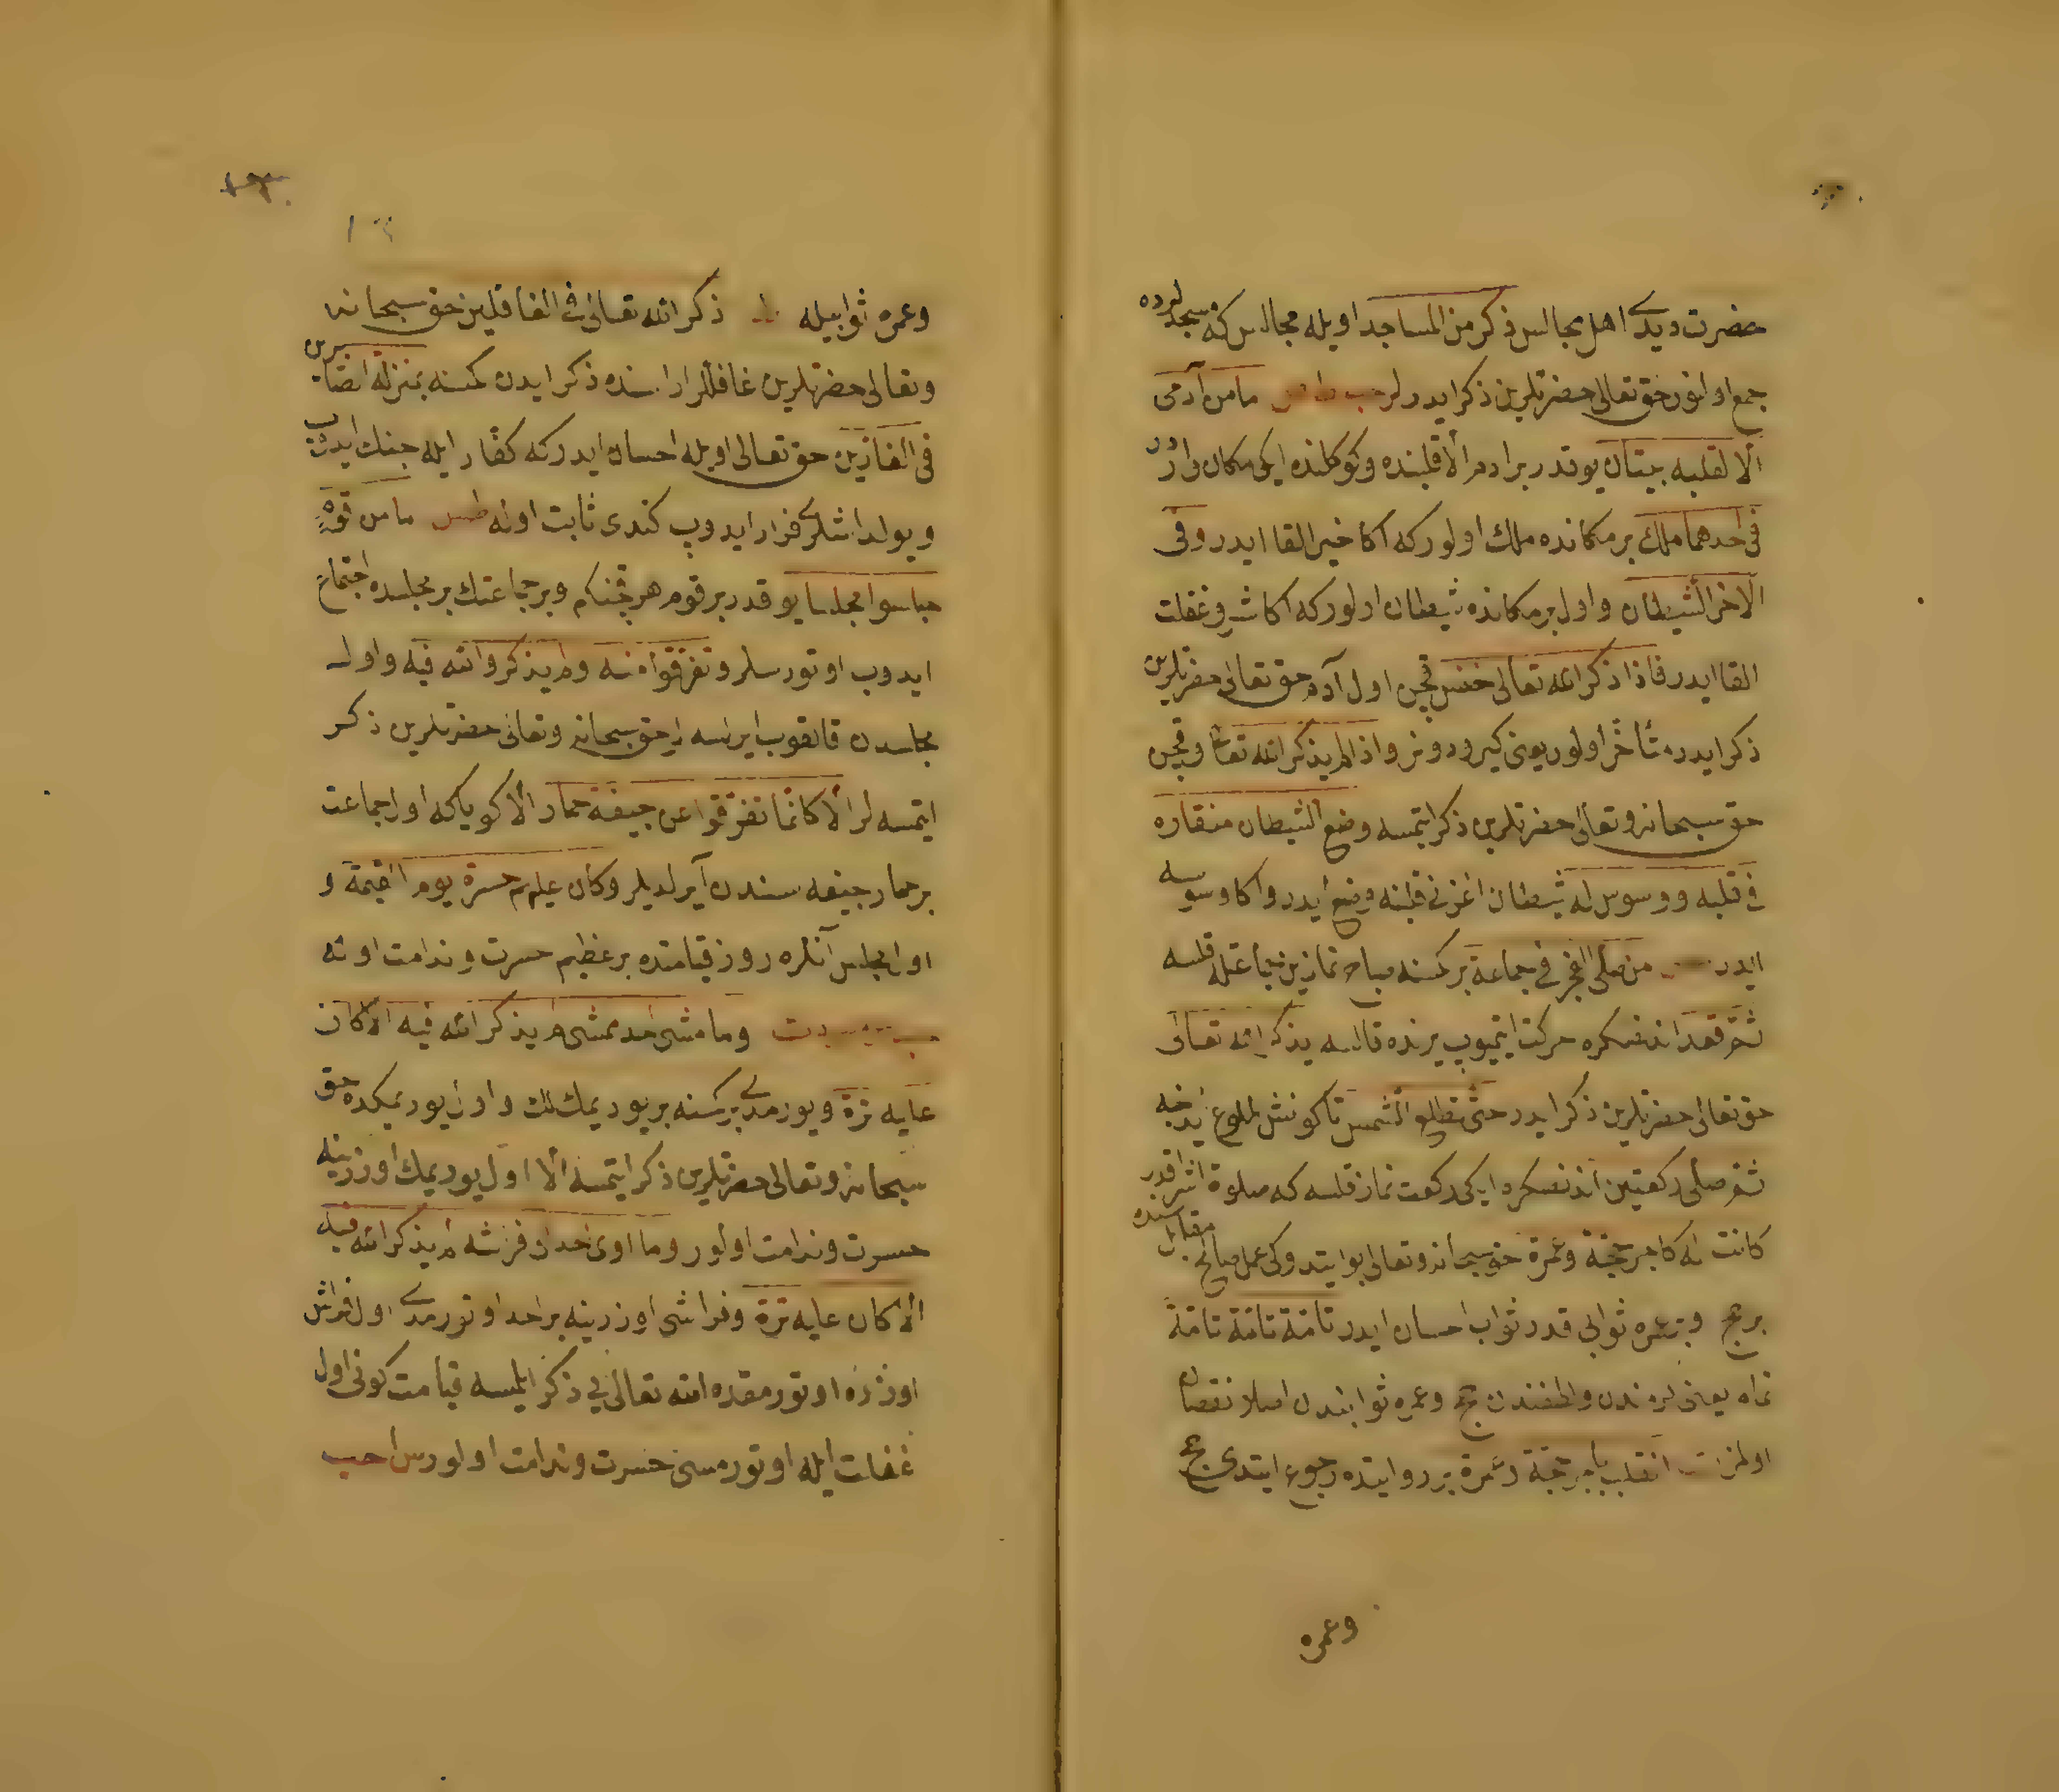 حضرت ديدى اهل مجالس ذكر من المساجد اويله مجالس كه مسجدلرده
جمع اولنور حق تعالى حضرتلرين ذكر ايدرلر حب ط مص ما من آدمى
الا لقلبه بيتان يوقدر بر ادم الا قلبنده و كوكلنده ايكى مكان واردر
فى احدهما ملك بر مكانده ملك اولور كه اكا خير القا ايدر و فى
الاخر الشيطان و اول بر مكانده شيطان اولور كه اكا شر و غفلت
القا ايدر فاذا ذكر الله تعالى خنس قچن اول آدم حق تعالى حضرتلرين
ذكر ايدر تأخر اولور يعنى كيرو دونر و اذا لم يذكر الله تعالى و قچن
حق سبحانه و تعالى حضرتلرين ذكر ايتمسه وضع الشيطان منقاره
فى قلبه و وسوس له شيطان اغزنى قلبنه وضع ايدر و اكا وسوسه
ايدر من صلى الفجر فى جماعة بر كمسنه صباح نمازين جماعتله قلسه
ثم قعد اندنصكره حركت ايتميوب يرنده قالسه يذكر الله تعالى
حق تعالى حضرتلرين ذكر ايدر حتى تطلع الشمس تا كونش طلوع ايدنجه
ثم صلى ركعتين اندنصكره ايكى ركعت نماز قلسه كه صلوة اشراقدر
كانت له كاجر حجة و عمرة حق سبحانه و تعالى بو ايتدوكى عمل صالح مقابله سنده
بر حج و بر عمره ثوابى قدر ثواب احسان ايدر تامة تامة تامة
تمام يعنى حج و عمره ثوابندن اصلا نقصان
اولمز انقلب باجر حجة و عمرة بر روايتده رجوع ايتدى حج
وعمره
وعمره ثوابيله ط ذاكر الله تعالى فى الغافلين حق سبحانه
و تعالى حضرتلرين غافللر اراسنده ذكر ايدن كمسنه بمنزلة الصابرين
فى الفارين حق تعالى اويله احسان ايدر كه كفار ايله جنك ايدوب
و يولداشلرى فرار ايدوب كندى ثابت اوله ما من قوم
جلسوا مجلسا يوقدر بر قوم هر قچنكم و بر جماعتك بر مجلسده اجتماع
ايدوب اوتورسلر و تفرقوا منه ولم يذكروا الله فيه و اول
مجلسدن قالقوب ايرلسه لر حق سبحانه و تعالى حضرتلرين ذكر
ايتمسه لر الا كانما تفرقوا عن جيفة حمار الا كويا كه اول جماعت
بر حمار جيفه سندن آيرلديلر و كان عليهم حسرة يوم القيمة و
اول مجلس آنلره روز قيامتده بر عظيم حسرت و ندامت اوله
و ما مشى احد ممشى لم يذكر الله فيه الا كان
عليه ترة و يورمدى بر كمسنه بر يوريمكلك و اول يوريمكده حق
سبحانه و تعالى حضرتلرين ذكر ايتمسه الا اول يوريمك اوزرينه
حسرت و ندامت اولور و ما اوى احد الى فرشه لم يذكر الله فيه
الا كان عليه ترة و فراشى اوزرينه بر احد اوتورمدى اول فراش
اوزره اوتورمقده الله تعالى يى ذكر ايلمسه قيامت كونى اول
غفلت ايله اوتورمسى حسرت و ندامت اولور س حب